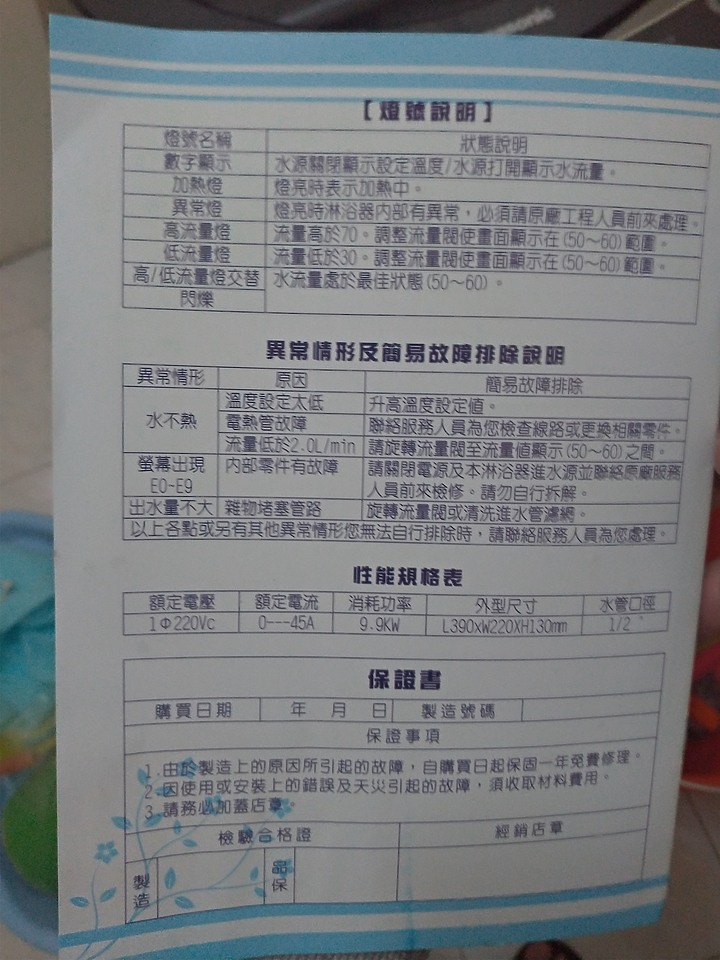 Panasonic
【燈號說明】
燈號名稱 狀態說明
數字顯示 水源關閉顯示設定溫度/水源打開顯示水流量。
加熱燈 燈亮時表示加熱中。
異常燈 燈亮時淋浴器內部有異常，必須請原廠工程人員前來處理。
高流量燈 流量高於70。調整流量閥使畫面顯示在(50～60)範圍。
低流量燈 流量低於30。調整流量閥使畫面顯示在(50～60)範圍。
高/低流量燈交替 水流量處於最佳狀態(50～60)。
閃爍
異常情形及簡易故障排除說明
異常情形 原因 簡易故障排除
水不熱 溫度設定太低 升高溫度設定值。
電熱管故障 聯絡服務人員為您檢查線路或更換相關零件。
流量低於2.0L/min 請旋轉流量閥至流量值顯示(50～60)之間。
螢幕出現 內部零件有故障 請關閉電源及本淋浴器進水源並聯絡原廠服務
E0-E9 人員前來檢修。請勿自行拆解。
出水量不大 雜物堵塞管路 旋轉流量閥或清洗進水管濾網。
以上各點或另有其他異常情形您無法自行排除時，請聯絡服務人員為您處理。
性能規格表
額定電壓 額定電流 消耗功率 外型尺寸 水管口徑
1Φ220Vc 0---45A 9.9KW L390xW220XH130mm 1/2"
保證書
購買日期 年 月 日 製造號碼
保證事項
1.由於製造上的原因所引起的故障，自購買日起保固一年免費修理。
2.因使用或安裝上的錯誤及天災引起的故障，須收取材料費用。
3.請務必加蓋店章。
檢驗合格證 經銷店章
製造 品保